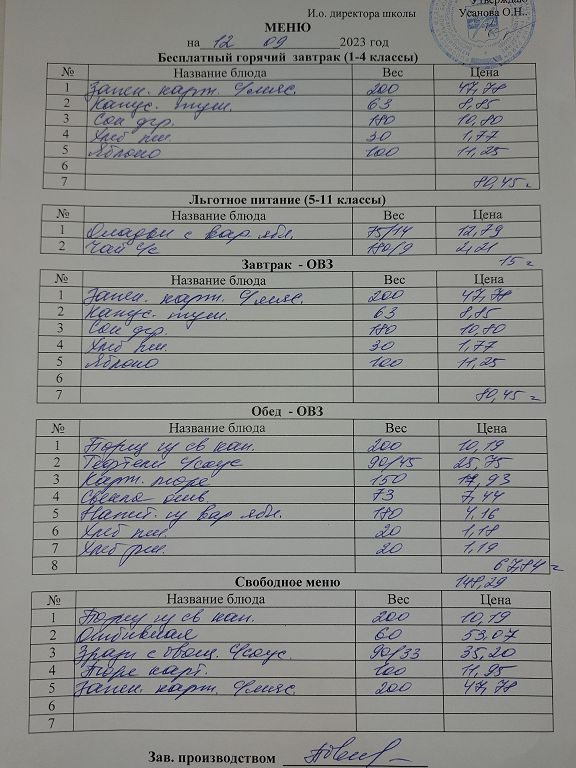 Утверждаю
И.о. директора школы Усанова О.Н.
МЕНЮ
на 12 09 2023 год
Бесплатный горячий завтрак (1-4 классы)
№ Название блюда Вес Цена
1 Запек. карт. с/мяс. 200 47,78
2 Капус. туш. 63 8,85
3 Сок фр. 180 10,80
4 Хлеб пш. 30 1,77
5 Яблоко 100 11,25
6
7 80,45
Льготное питание (5-11 классы)
№ Название блюда Вес Цена
1 Оладьи с вар. ябл. 75/14 12,79
2 Чай с/с 180/9 2,21
15
Завтрак - ОВЗ
№ Название блюда Вес Цена
1 Запек. карт. с/мяс. 200 47,78
2 Капус. туш. 63 8,85
3 Сок фр. 180 10,80
4 Хлеб пш. 30 1,77
5 Яблоко 100 11,25
6
7 80,45
Обед - ОВЗ
№ Название блюда Вес Цена
1 Борщ из св кап. 200 10,19
2 Тефтели с/соус 90/45 25,75
3 Карт. пюре 150 17,93
4 Свекла отв. 73 7,44
5 Напит. из вар ябл. 180 4,16
6 Хлеб пш. 20 1,18
7 Хлеб рж. 20 1,19
8 67,84
148,29
Свободное меню
№ Название блюда Вес Цена
1 Борщ из св кап. 200 10,19
2 Отбивная 60 53,07
3 Зразы с овощ. с/соус. 90/33 35,20
4 Пюре карт. 100 11,95
5 Запек. карт. с/мяс. 200 47,78
6
7
Зав. производством